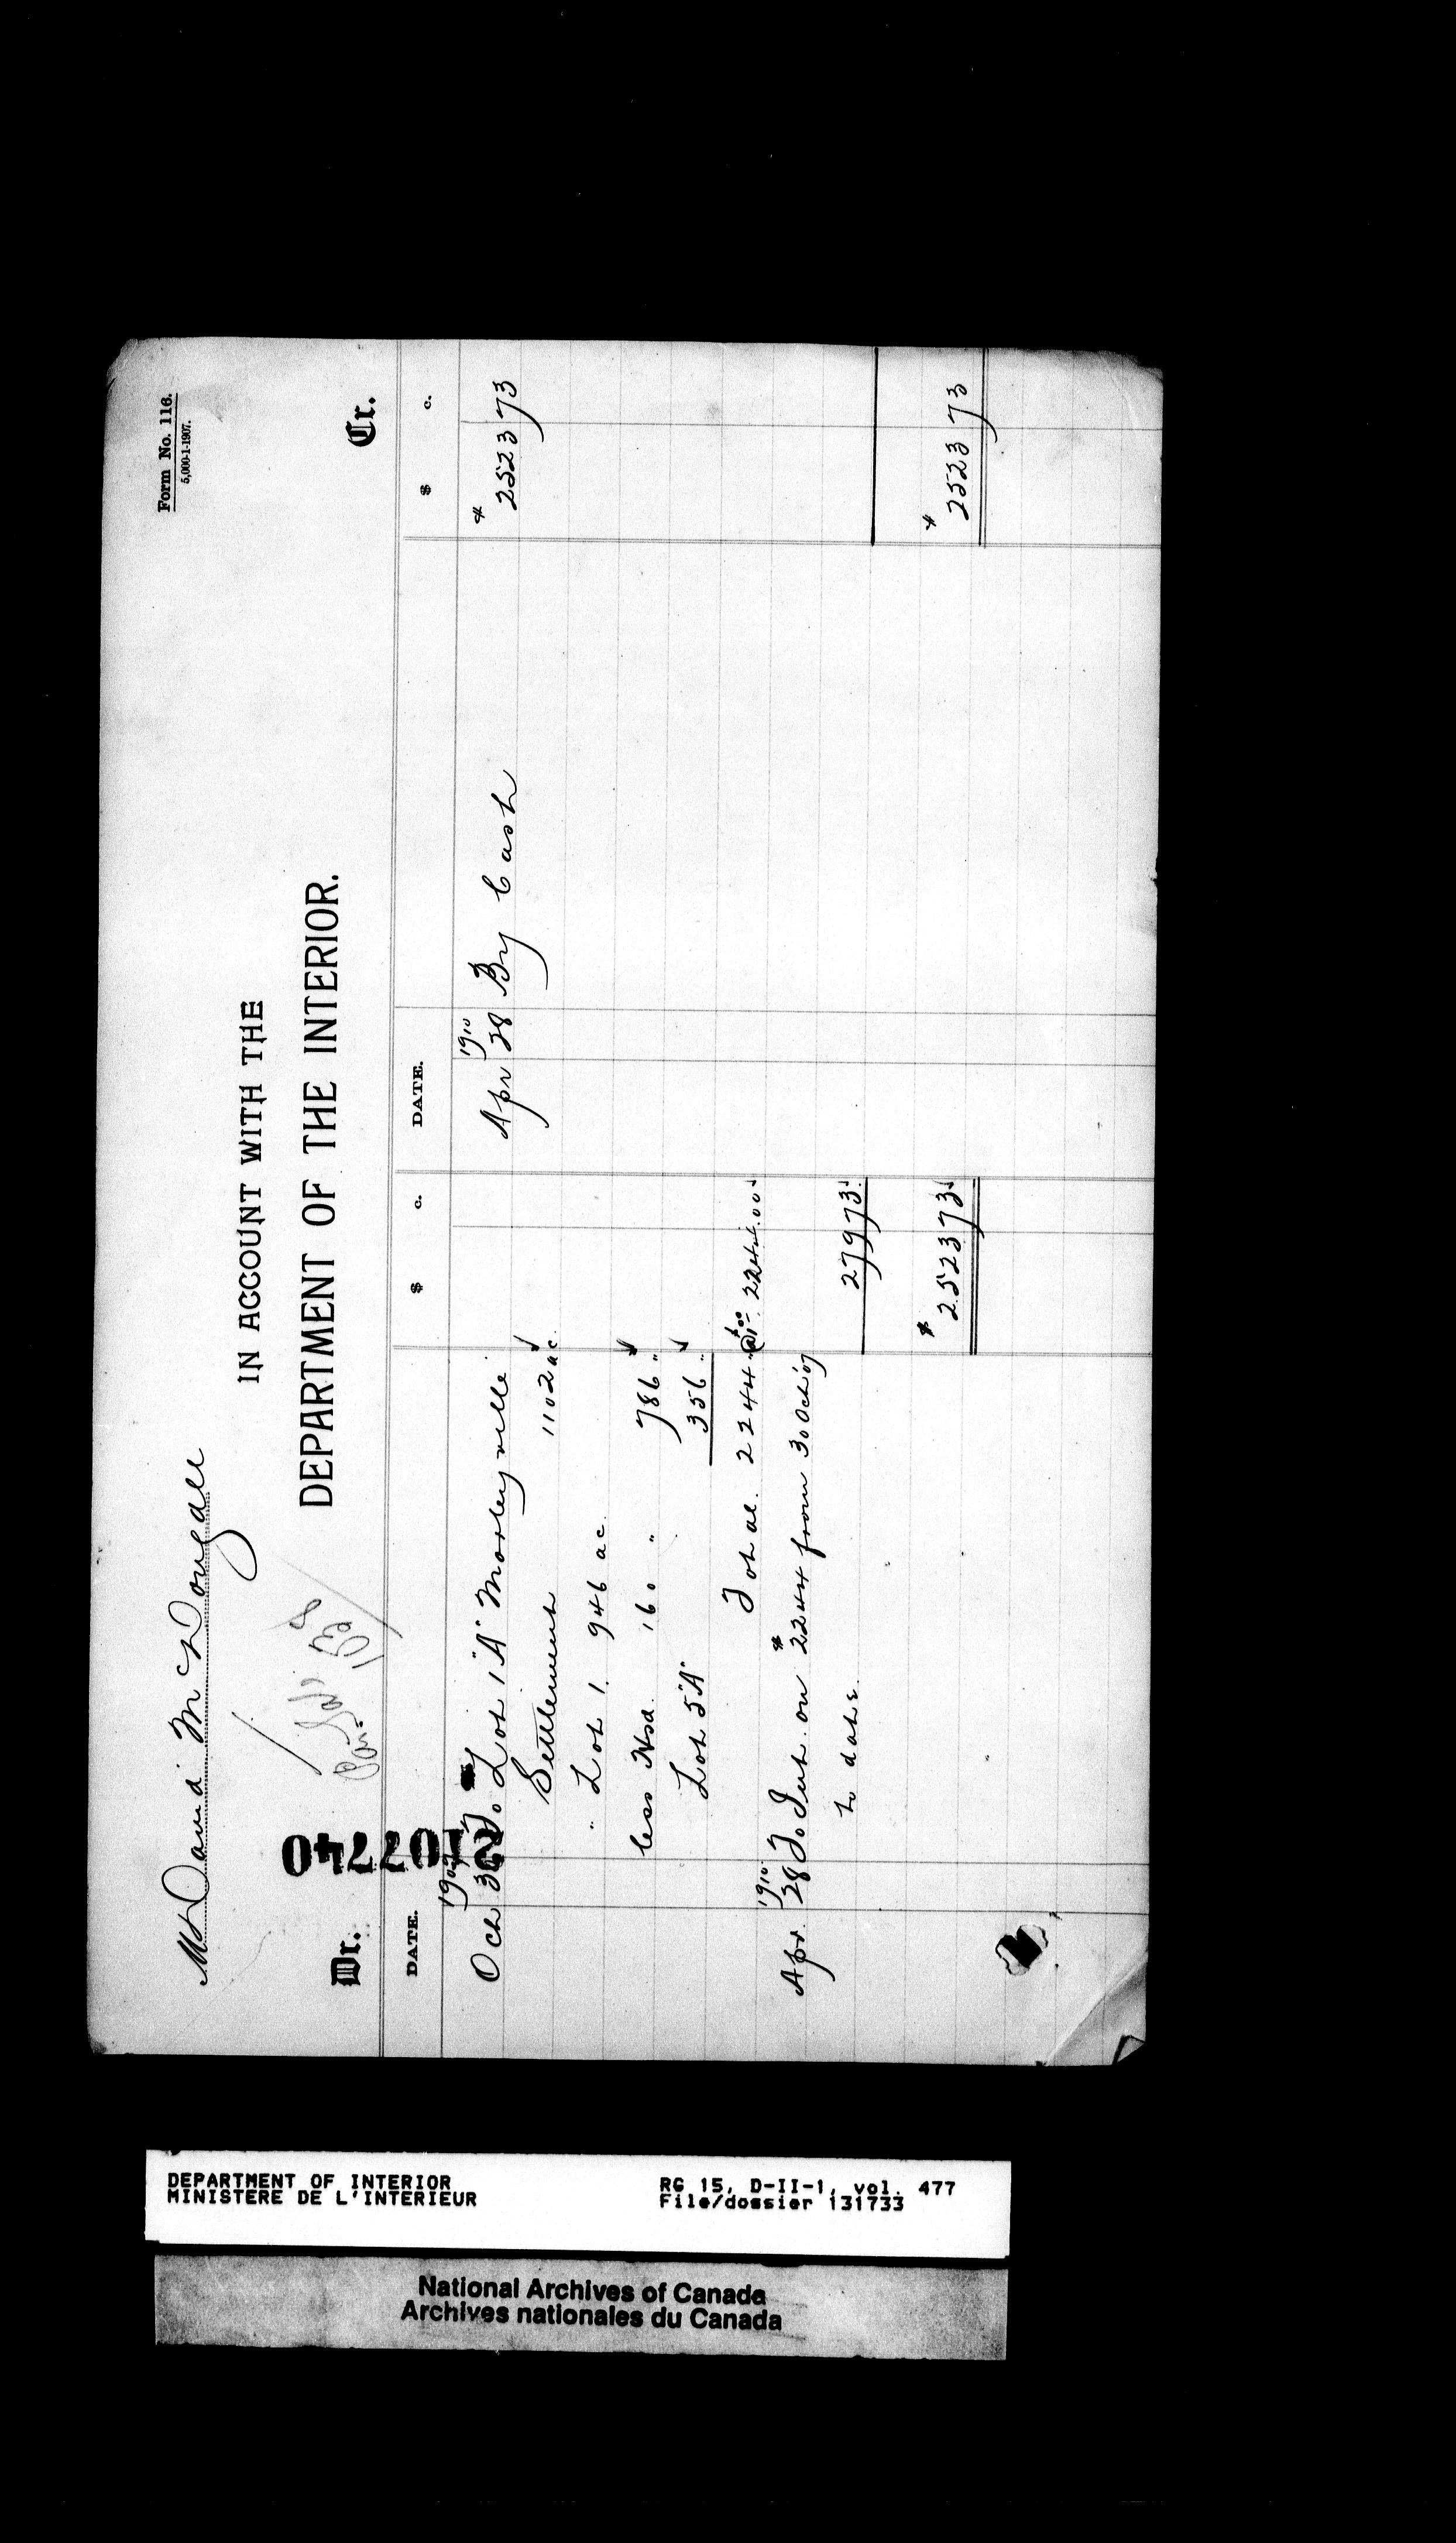 Form No. 116.
5,000-1-1907.
Mr David McDougall
IN ACCOUNT WITH THE
DEPARTMENT OF THE INTERIOR.
2107740
Dr.
Cr.
DATE. $ c. DATE. $ c.
1907 1910 $
Oct 30 To Lot 1 "A" Morleyville Apr 28 By Cash 2523 73
Settlement 1102 ac.
" Lot 1. 946 ac.
less Hsd. 160 " 786 "
Lot 5 "A" 356 "
Total. 2244 " @ 1.00 2244.00
1910
Apr. 28 To Int. on $2244 from 30 Oct '07
to date 279 73
$ 2523 73 $ 2523 73
DEPARTMENT OF INTERIOR
MINISTERE DE L'INTERIEUR
RG 15, D-II-1, vol. 477
File/dossier 131733
National Archives of Canada
Archives nationales du Canada